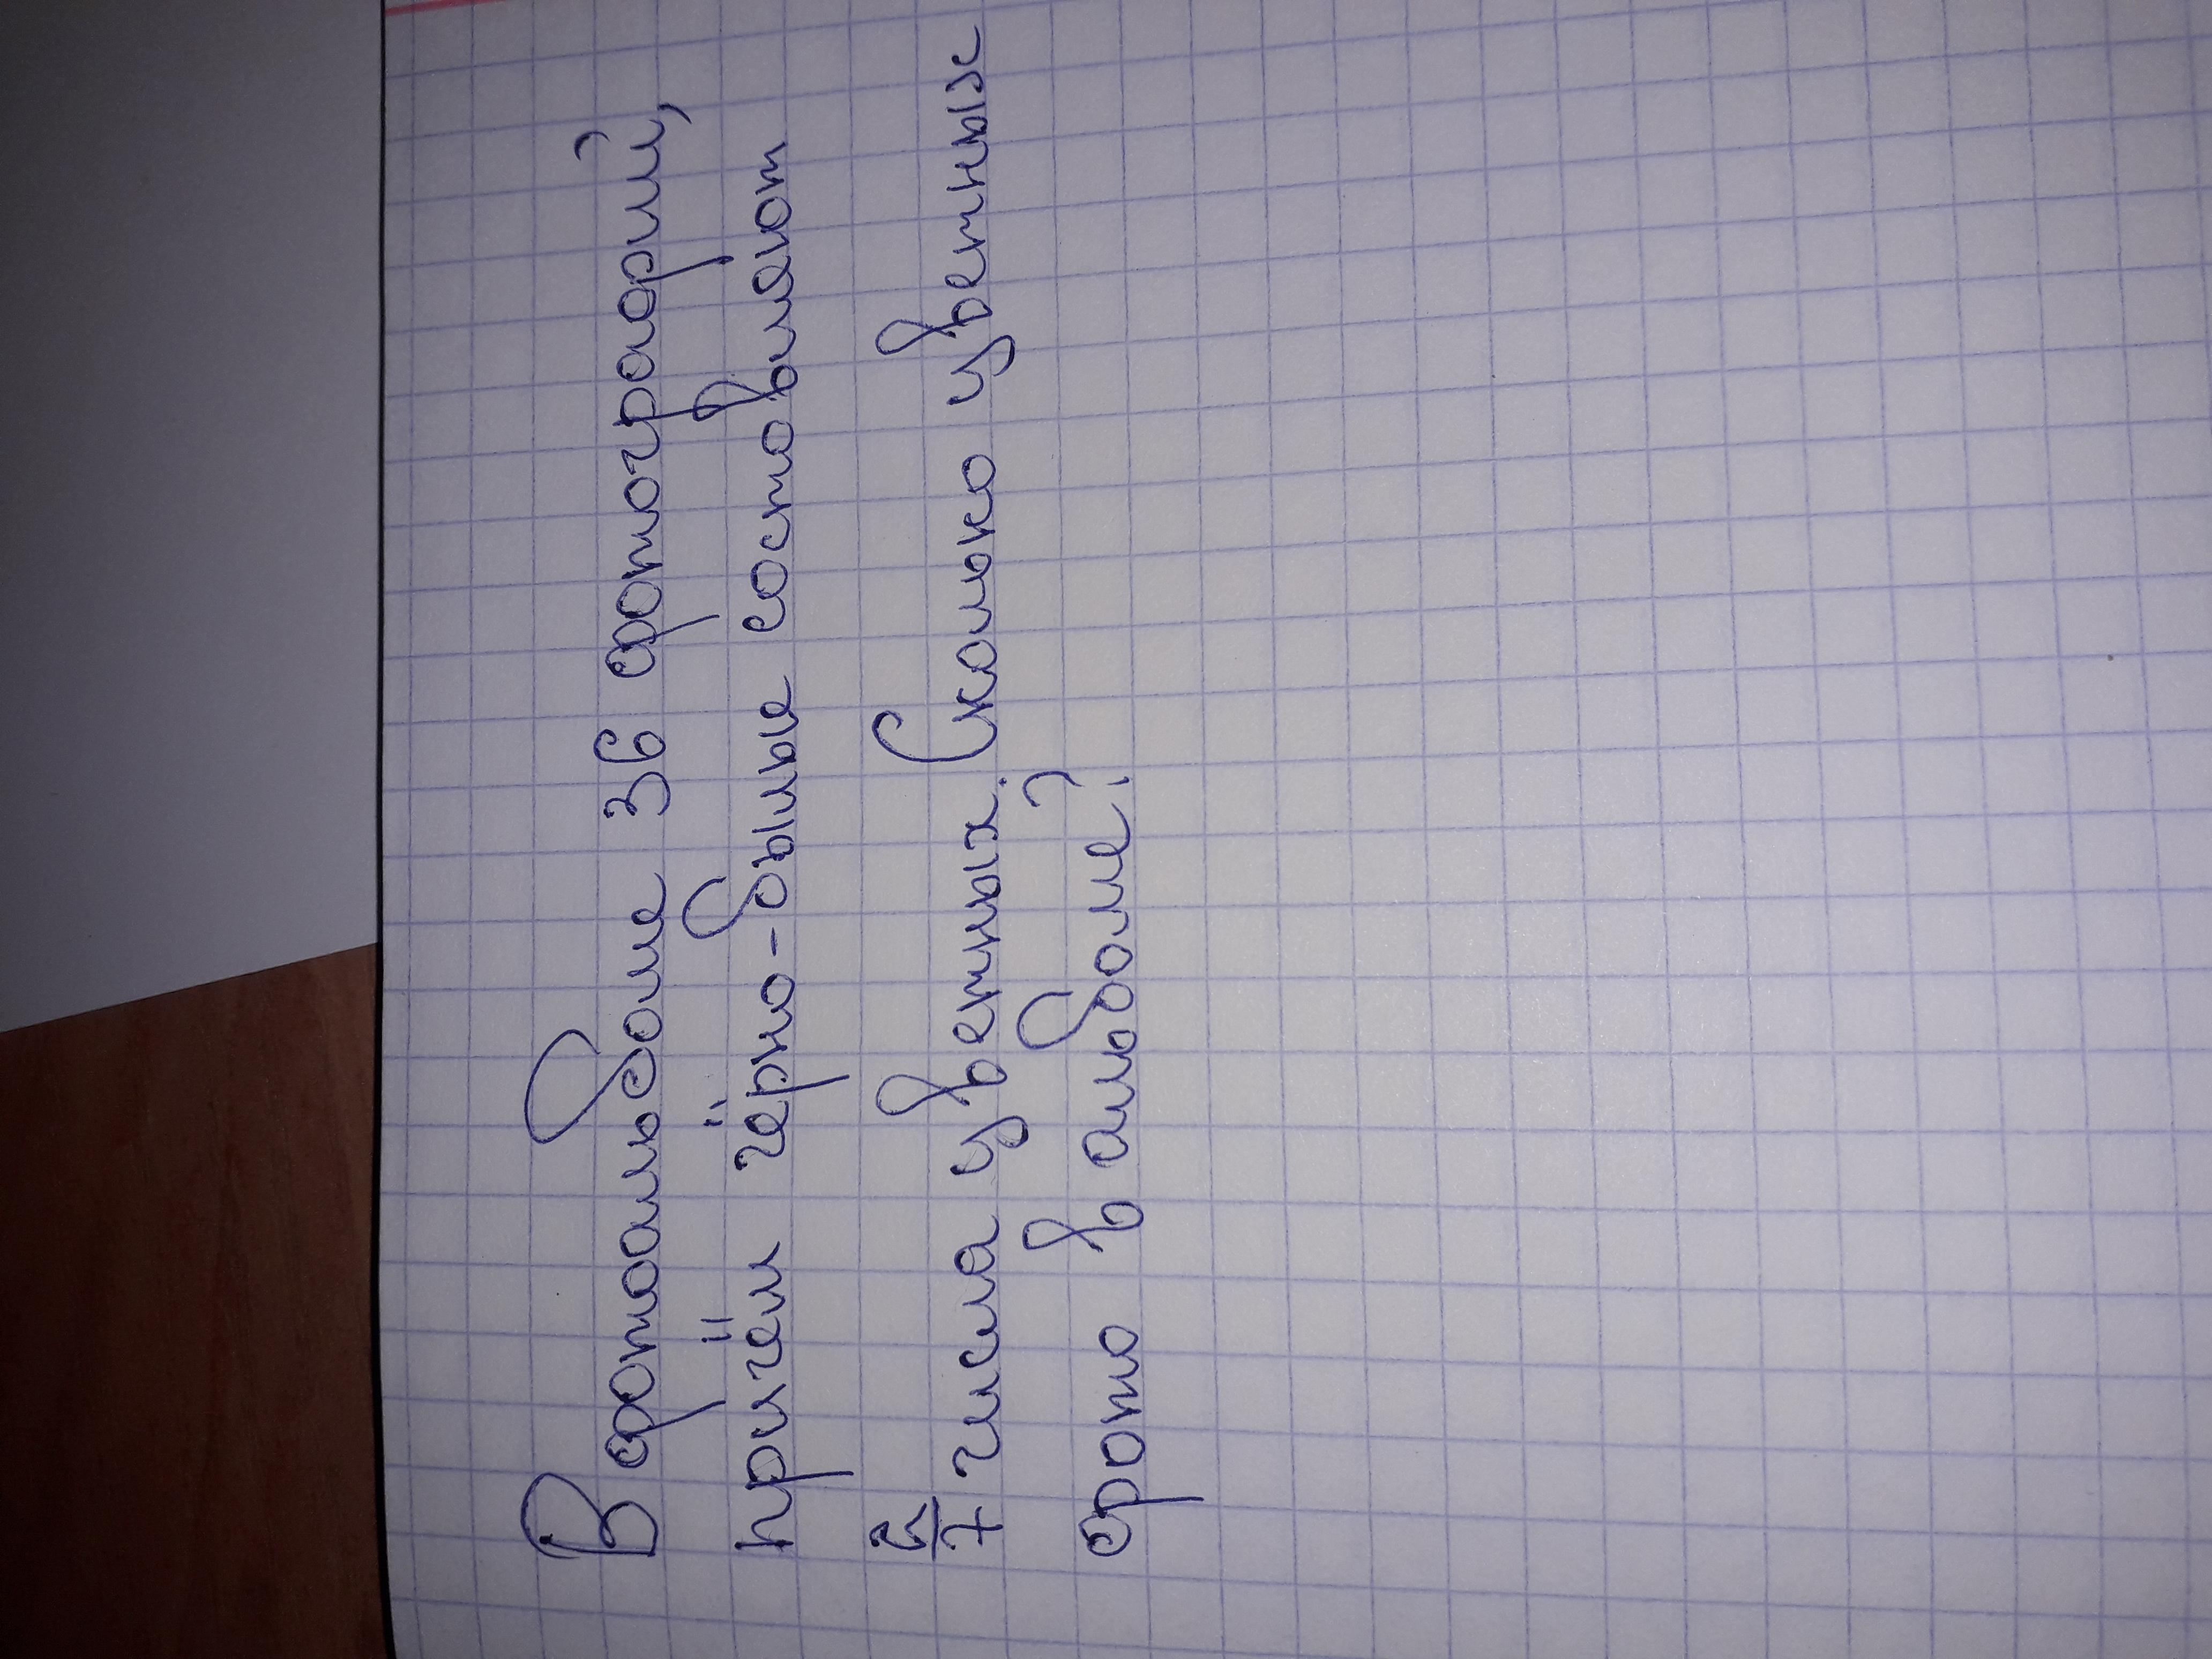 В фотоальбоме 36 фотографий,
причём чёрно-былые составляют
2/7 числа цветных. Сколько цветных
фото в альбоме?